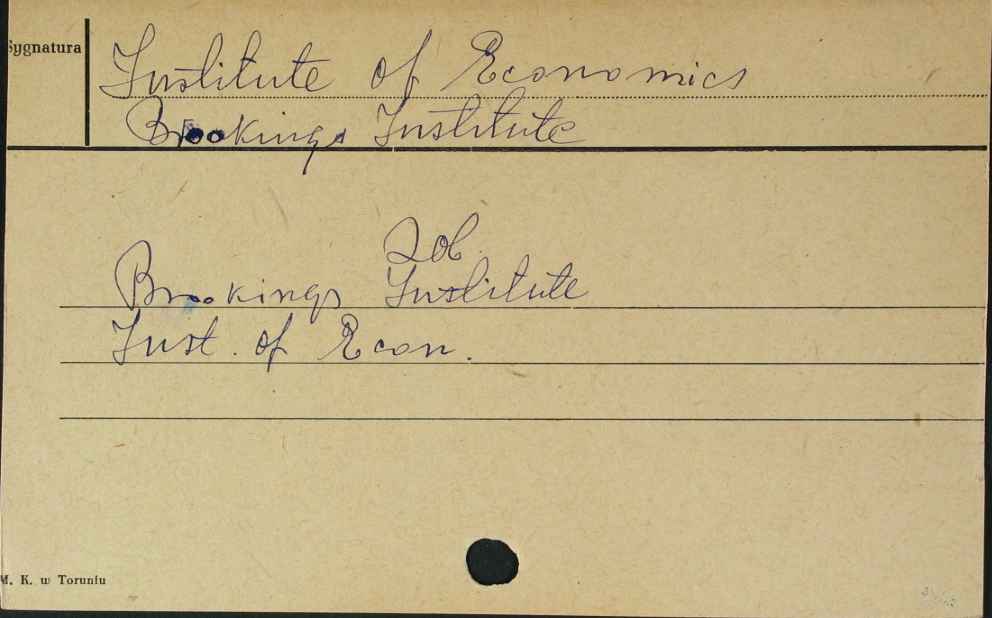 Sygnatura
Institute of Economics
Brookings Institute
Zob.
Brookings Institute
Inst. of Econ.
M. K. w Toruniu